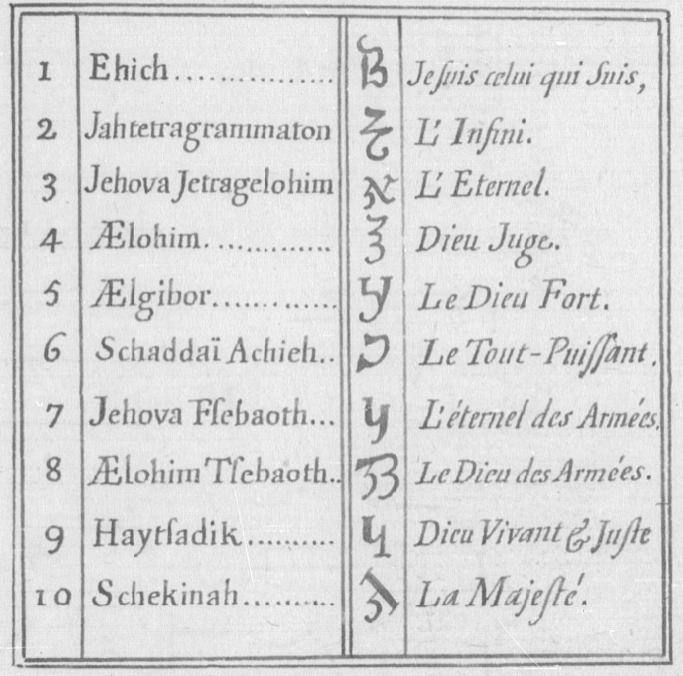 1 Ehich............... Je ſuis celui qui Suis,
2 Jahtetragrammaton L' Infini.
3 Jehova Jetragelohim L' Eternel.
4 Ælohim............. Dieu Juge.
5 Ælgibor............. Le Dieu Fort.
6 Schaddaï Achieh.. Le Tout-Puiſſant.
7 Jehova Fſebaoth... L'éternel des Armées.
8 Ælohim Tſebaoth.. Le Dieu des Armées.
9 Haytſadik.......... Dieu Vivant & Juſte
10 Schekinah.......... La Majeſté.